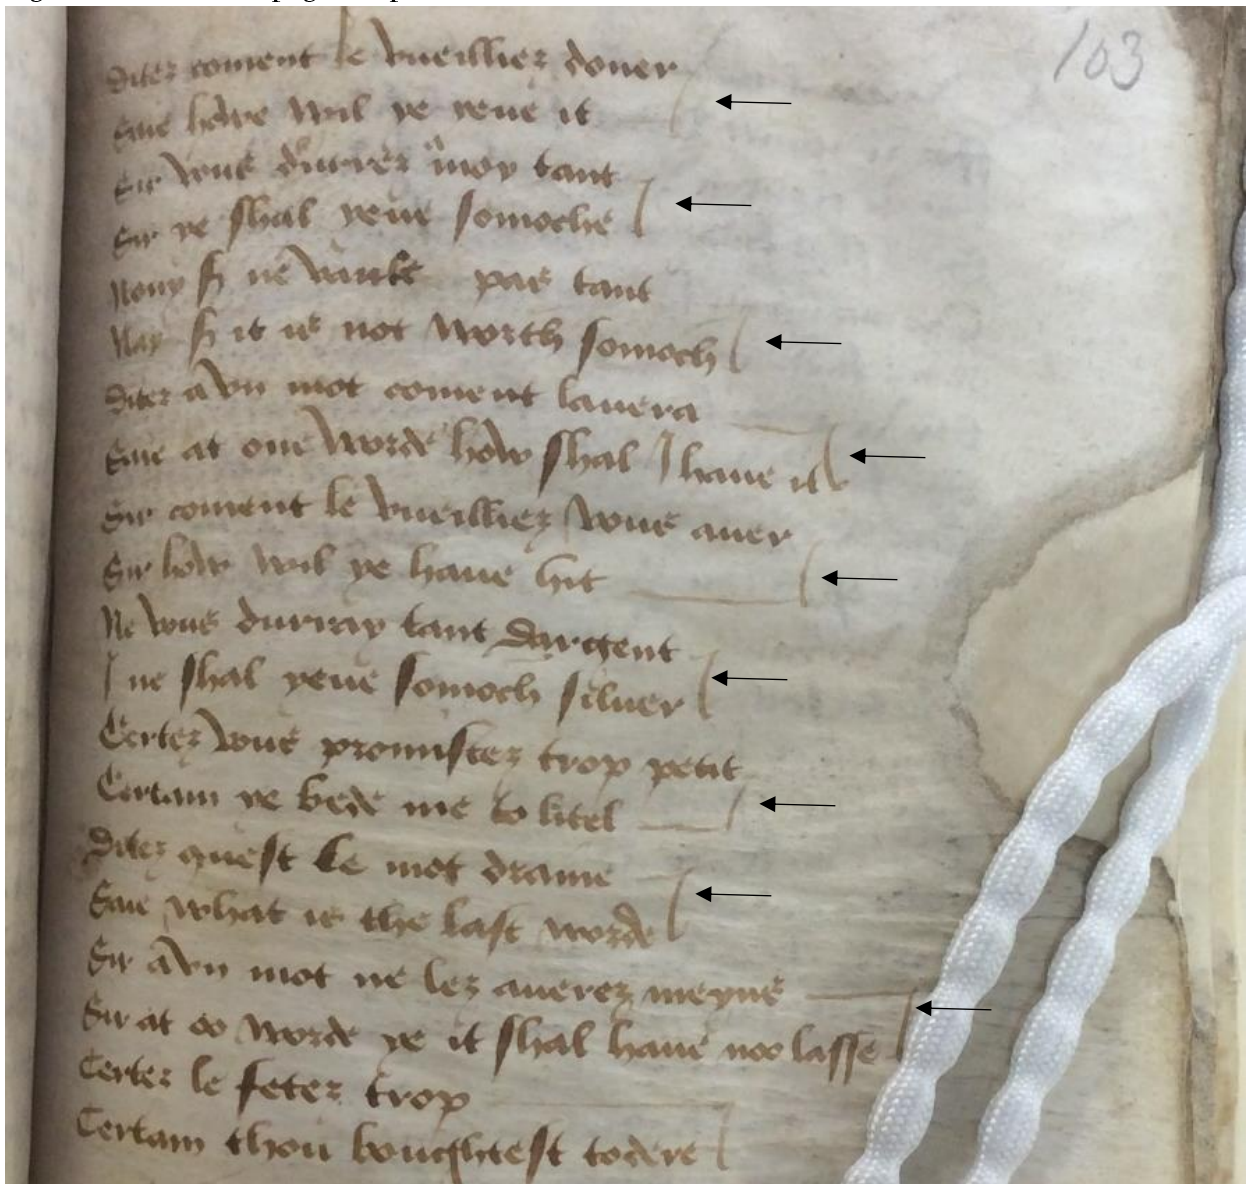 103
Ditez coment le vueilliez doner
Saie howe wil ye yeue it
Sir vous durrez moy tant
Sir ye shal yeue somoche
Nony sir ne vault pas tant
Nay sir it is not worth somoch
Ditez a vn mot coment lauera
Saie at one worde how shal I haue it
Sir coment le vueilliez vous auer
Sir how wil ye haue hit
Ne vous durray tant dargent
I ne shal yeue somoch siluer
Certez vous promistez trop petit
Certain ye bede me to litel
Ditez quest le mot
Saie what is the last worde
Sir a vn mot ne lez auerez meyns
Sir at oo worde ye it shal haue noo lasse
Certez le fetez trop
Certain thou boughtest todere